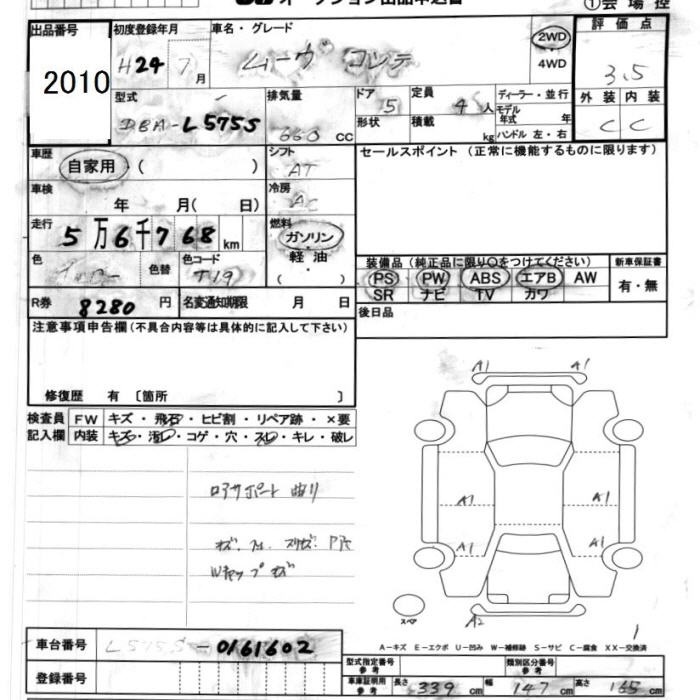 ①会場控
出品番号 2010
初度登録年月 H24年 7月
車名・グレード ムーヴ コンテ
2WD
4WD
評価点 3.5
型式 DBA-L575S
排気量 660 CC
ドア 5
形状
定員 4人
積載 kg
ディーラー・並行
モデル年式 年
ハンドル 左・右
外装 C
内装 C
車歴 自家用 ( )
シフト AT
セールスポイント (正常に機能するものに限ります)
車検 年 月( 日)
冷房 AC
走行 5万6千768km
燃料 ガソリン・軽油・( )
色 色替
色コード T19
装備品(純正品に限り○をつけてください)
PS PW ABS エアB AW
SR ナビ TV カワ
新車保証書 有・無
R券 8280円
名変通知期限 月 日
後日品
注意事項申告欄(不具合内容等は具体的に記入して下さい)
修復歴 有 〔箇所 〕
検査員記入欄
FW キズ・飛石・ヒビ割・リペア跡・×要
内装 キズ・汚レ・コゲ・穴・スレ・キレ・破レ
A1 A1
A1 A1
A1 A1
A2
ロアサポート 曲り
Wキャップ キズ
スペア
1
A-キズ E-エクボ U-凹み W-補修跡 S-サビ C-腐食 XX-交換済
車台番号 L575S-0161602
登録番号
型式指定番号 参考
類別区分番号 参考
車庫証明用 参考 長さ 339cm 幅 147cm 高さ 165cm